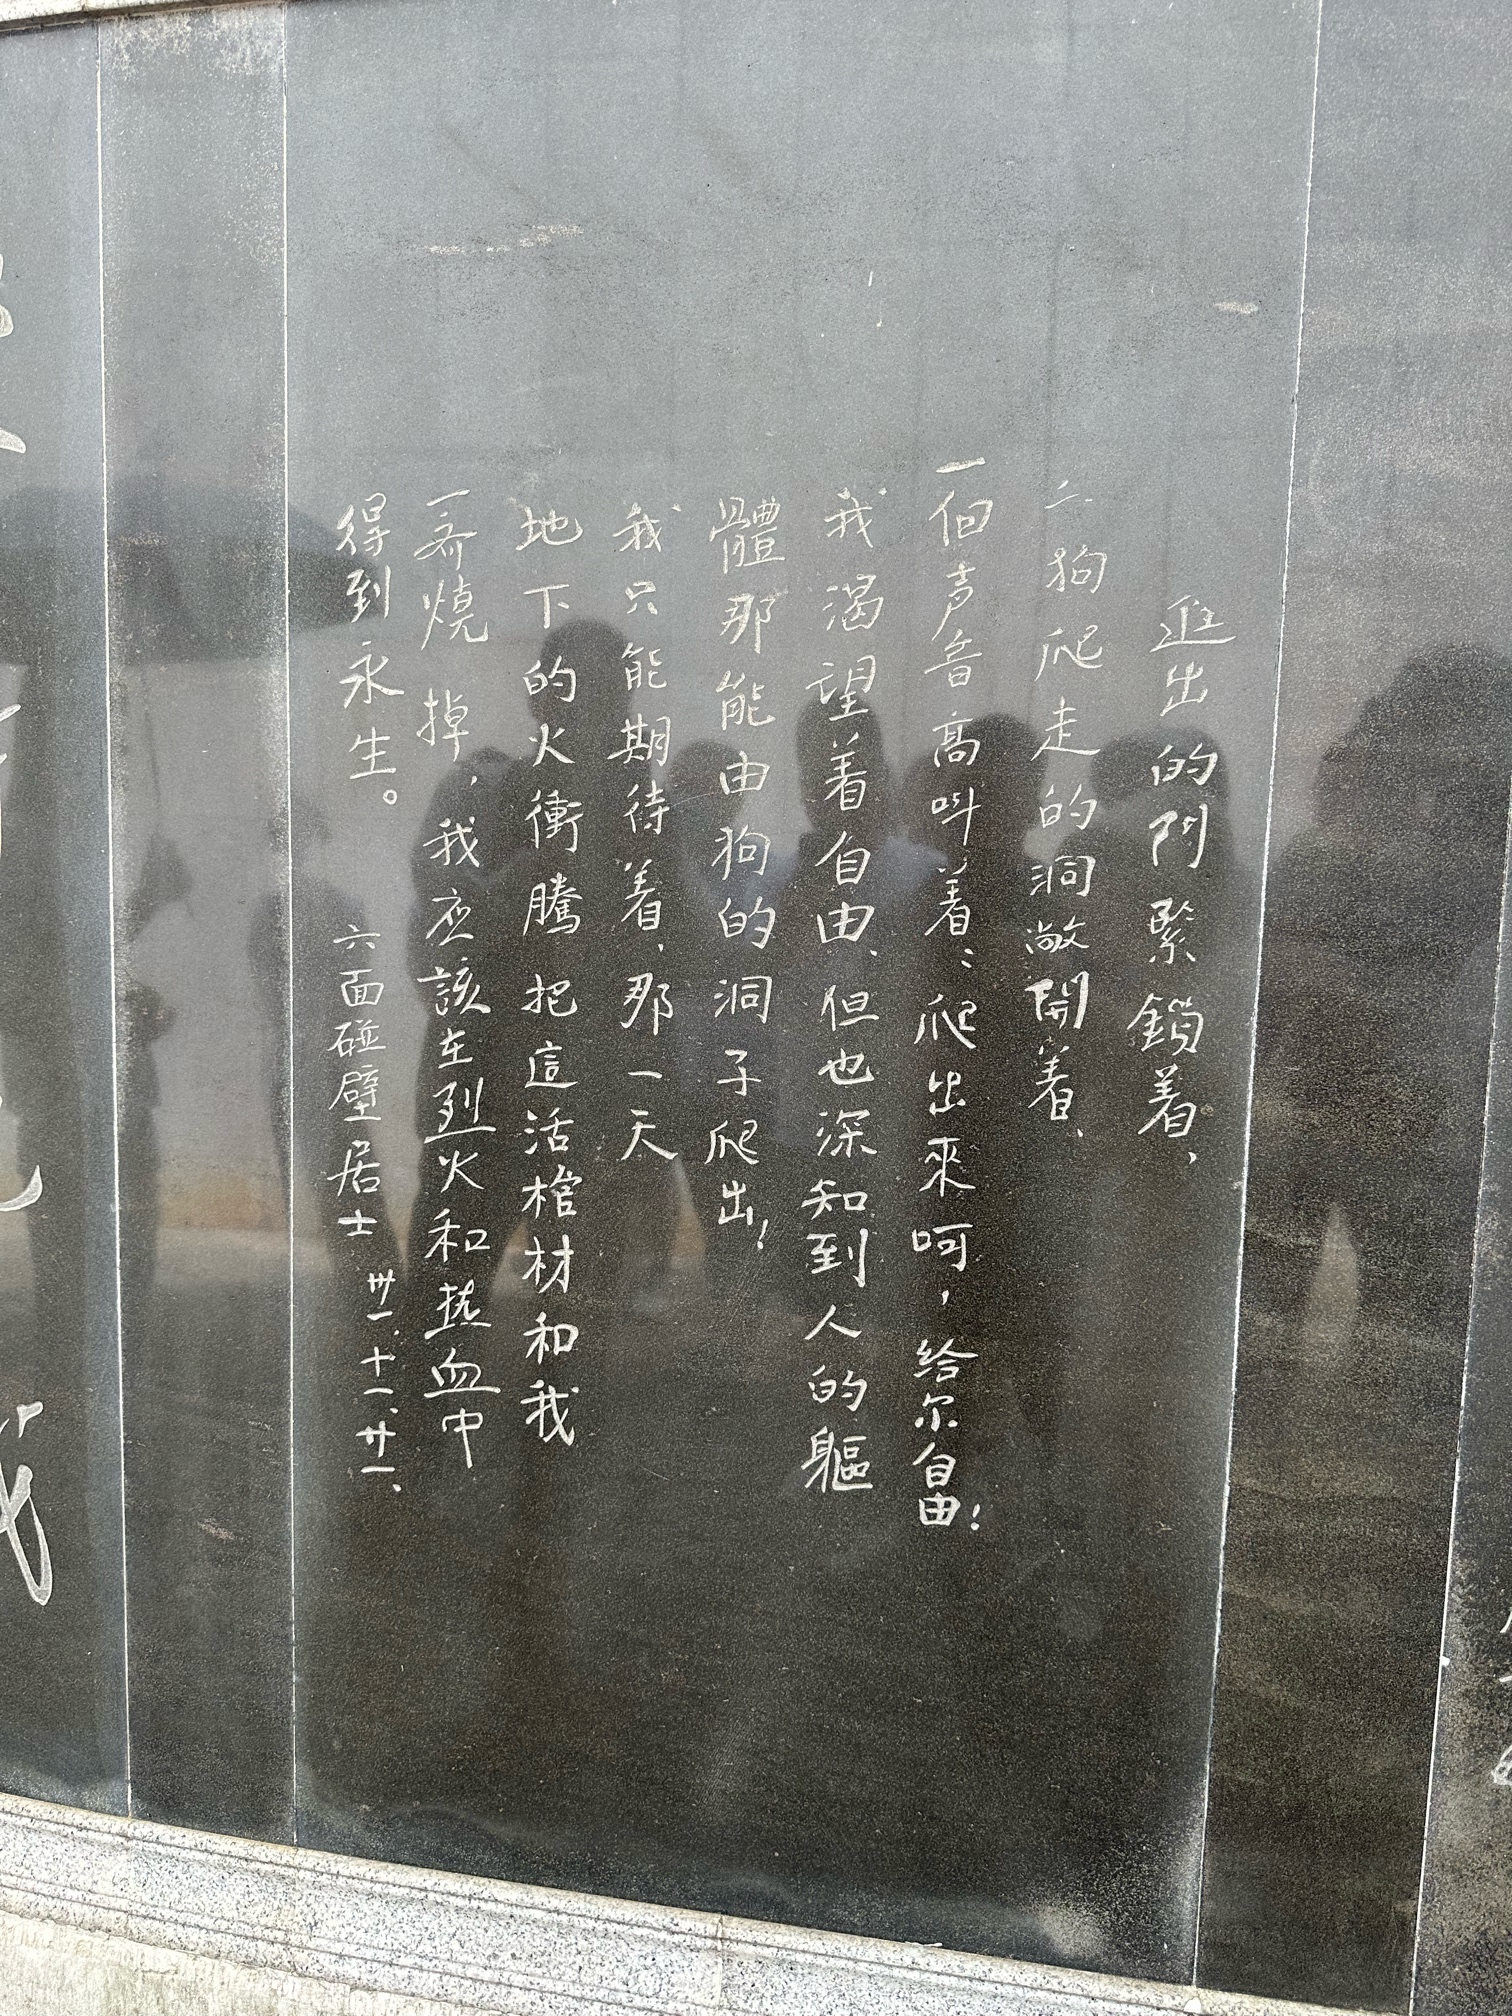 進出的門緊鎖着，
狗爬走的洞敞開着、
一個声音高叫着：爬出來呵，給尔自由！
我渴望着自由、但也深知到人的軀
體那能由狗的洞子爬出！
我只能期待着、那一天
地下的火衝騰把這活棺材和我
一齐燒掉，我应該在烈火和热血中
得到永生。
六面碰壁居士
卅一、十一、廿一、